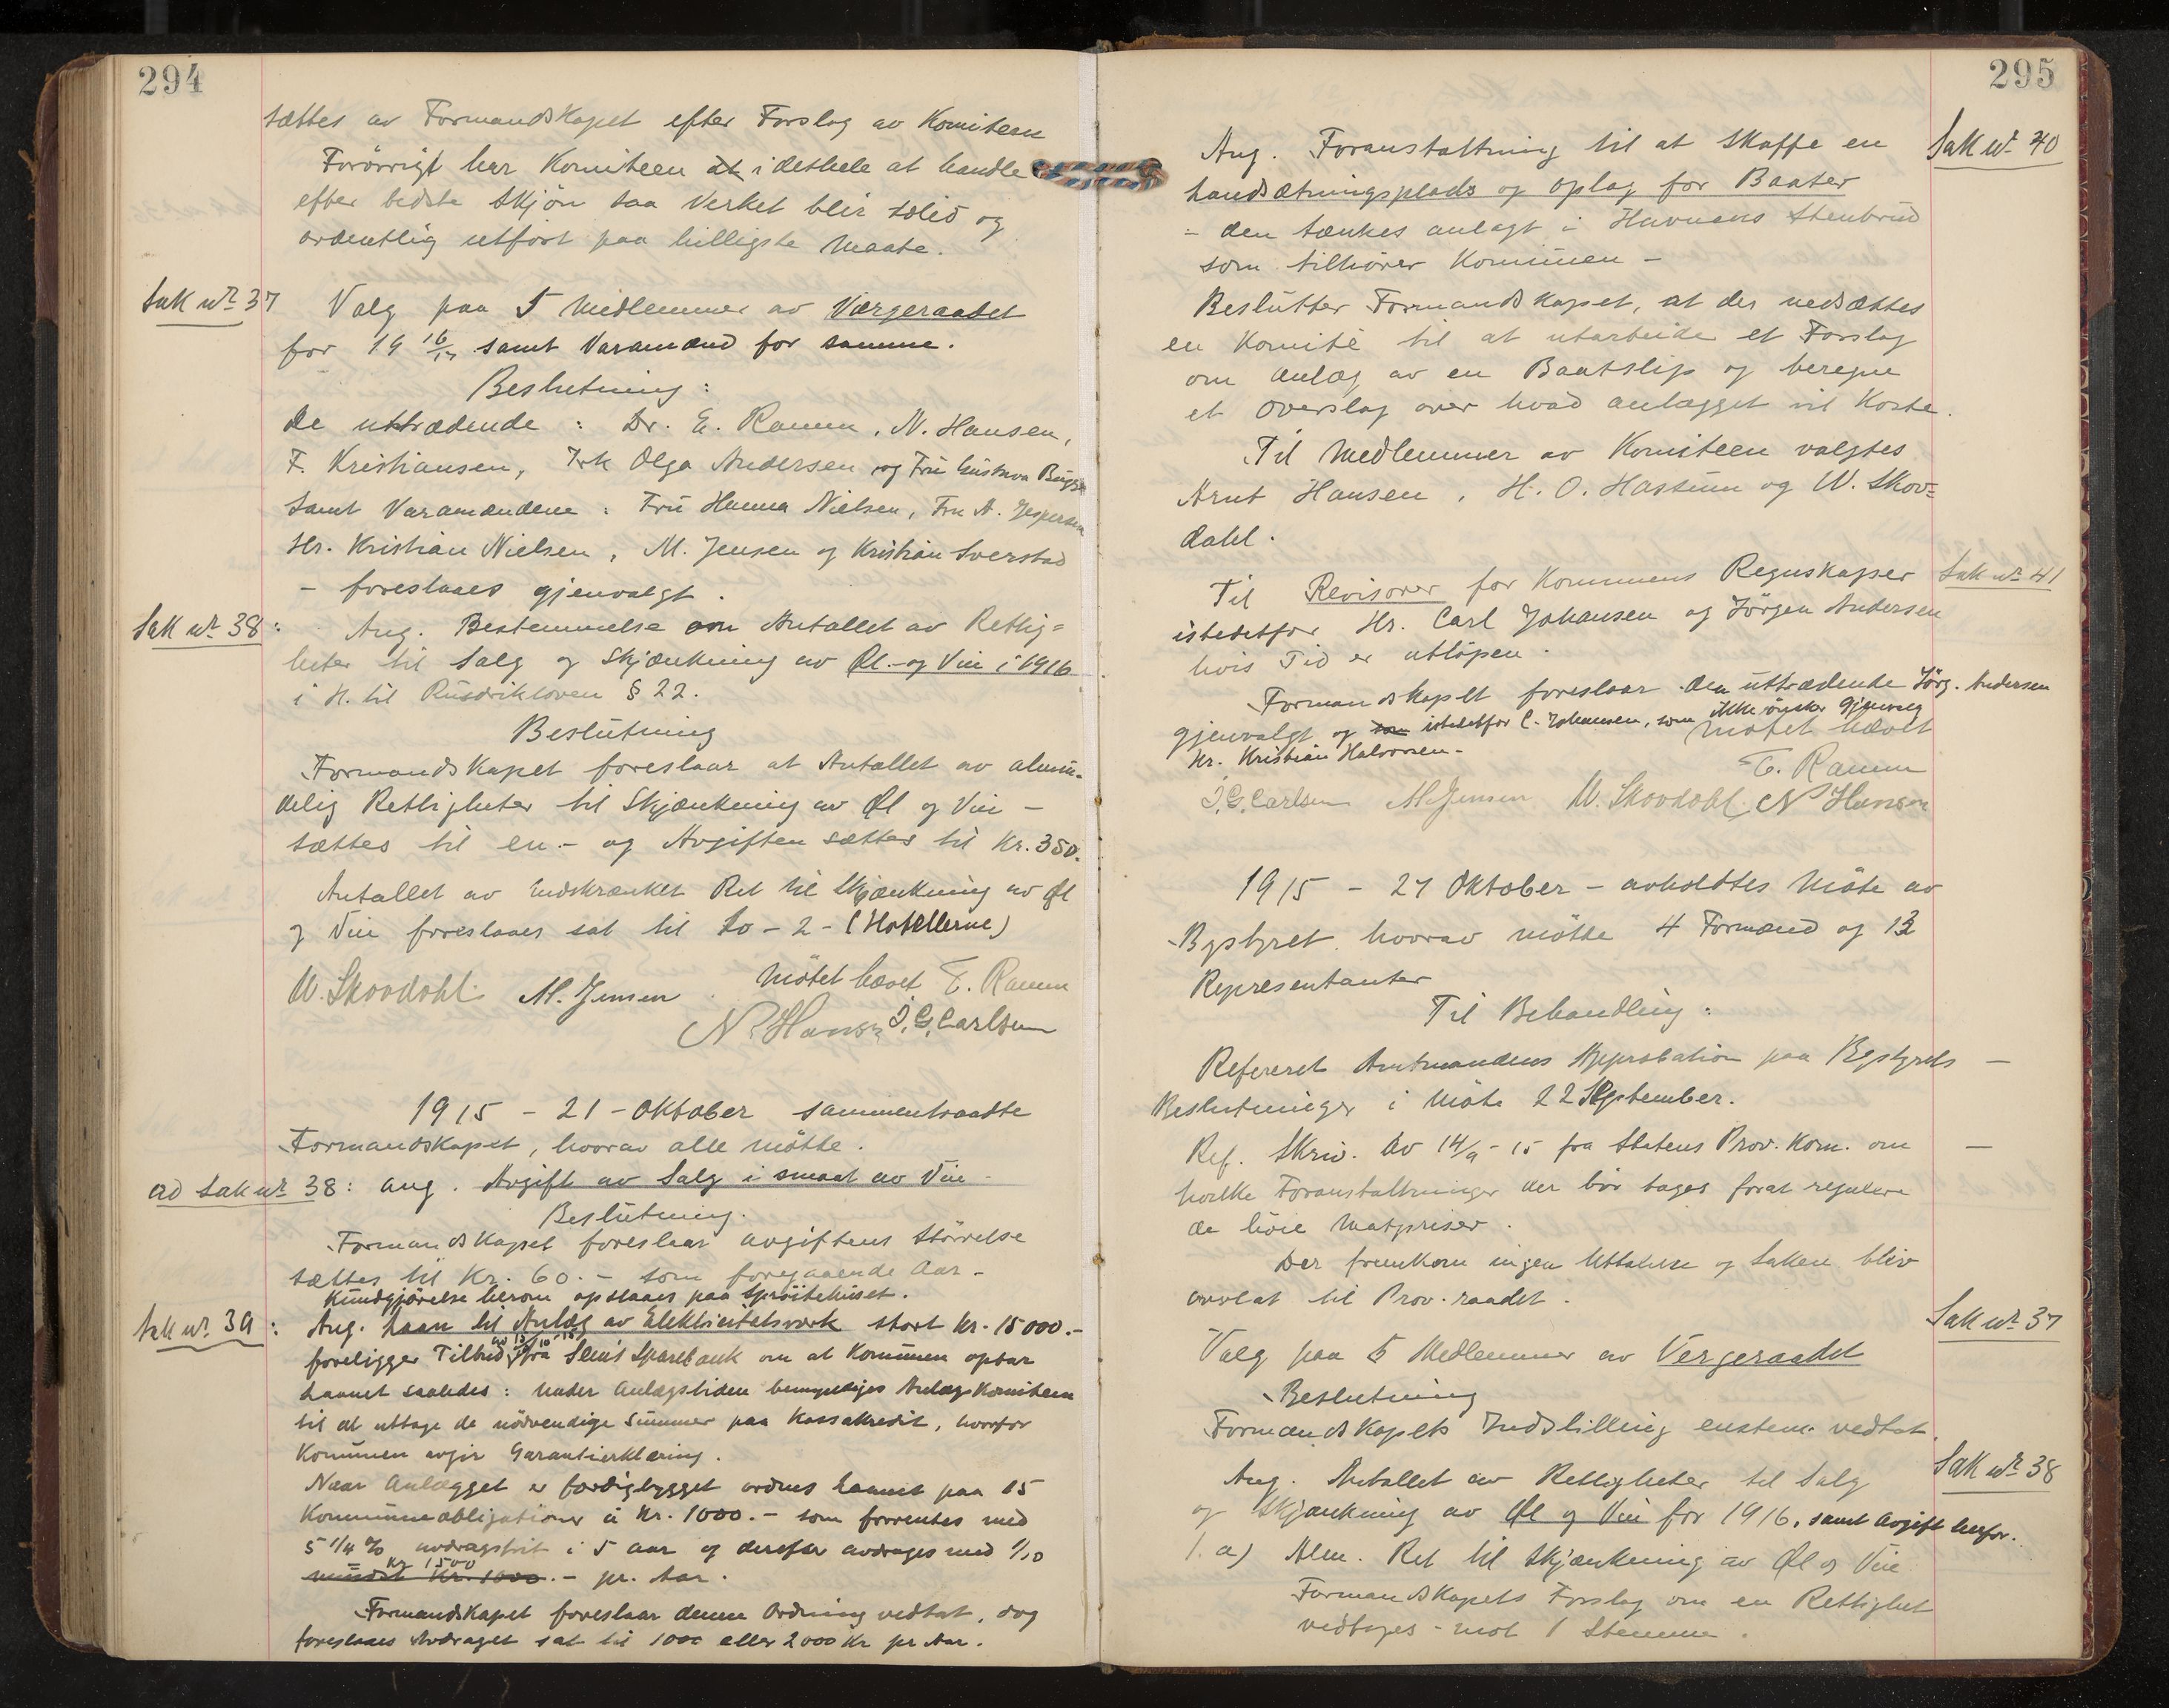 294
sættes av Formandskapet efter Forslag av Komiteen
Forövrigt har Komiteen at i dethele at handle
efter bedste Skjön saa Verket blir solid og
ordentlig utfört paa billigste Maate.
Sak nr. 37
Valg paa 5 Medlemmer av Værgeraadet
for 19 16/17 samt Varamænd for samme.
Beslutning:
De uttrædende: Dr. E. Ramm, N. Hansen,
F. Kristiansen, Frk Olga Andersen og Fru Gustava Bugge
samt Varamændene: Fru Hanna Nielsen, Fru A. Jespersen
Hr. Kristian Nielsen, M. Jensen og Kristian Sverstad
- foreslaaes gjenvalgt.
Sak nr. 38:
Ang. Bestemmelse om Antallet av Rettig=
heter til Salg og Skjænkning av Øl- og Vin i 1916
i H. til Rusdrikloven § 22.
Beslutning
Formandskapet foreslaar at Antallet av almin-
delig Rettigheter til Skjænkning av Øl og Vin -
sættes til en - og Avgiften sættes til Kr. 350.
Antallet av Indskrænket Ret til Skjænkning av Øl
og Vin foreslaaes sat til to - 2 - (Hotellerne)
Mötet hævet E. Ramm
W. Skovdahl M. Jensen
N Hansen J. G. Carlsen
1915 - 21 - Oktober sammentraadte
Formandskapet, hvorav alle mötte.
ad Sak nr. 38: Ang. Avgift av Salg i smaat av Vin
Beslutning.
Formandskapet foreslaar avgiftens Störrelse
sættes til Kr. 60.- som foregaaende Aar -
Kundgjörelse herom opslaaes paa Spröitehuset.
Sak nr. 39:
Ang. Laan til Anlæg av Elektricitetsverk stort Kr. 15000.-
foreligger Tilbud av 13/10-15 fra Slens Sparebank om at Kommunen optar
Laanet saaledes: Under Anlægstiden bemyndiges Anlægskomiteen
til at uttage de nödvendige Summer paa Kassakredit, hvorfor
Kommunen avgir Garantierklæring.
Naar Anlægget er færdigbygget ordnes Laanet paa 15
Kommuneobligationer à Kr. 1000.- som forrentes med
5 1/4 % avdragsfrit i 5 aar og derefter avdrages med 1/10
mindst Kr. 1000.- Kr 1500 pr. Aar.
Formandskapet foreslaar denne Ordning vedtat, dog
foreslaaes Avdraget sat til 1000 eller 2000 Kr pr Aar.
295
Sak nr. 40
Ang. Foranstaltning til at skaffe en
Landsætningsplads og Oplag for Baater
- den tænkes anlagt i Havnens Stenbrud
som tilhörer Kommunen -
Beslutter Formandskapet, at der nedsættes
en Komité til at utarbeide et Forslag
om Anlæg av en Baatslip og beregne
et Overslag over hvad anlægget vil koste.
Til Medlemmer av Komiteen valgtes
Arnt Hansen, H. O. Hassum og W. Skov=
dahl.
Sak nr. 41
Til Revisorer for Kommunens Regnskaper
istedetfor Hr. Carl Johansen og Jörgen Andersen
hvis Tid er utlöpen.
Formandskapet foreslaar den uttrædende Jörg. Andersen
gjenvalgt og som istedetfor C. Johansen, som ikke önsker Gjenvalg
Hr. Kristian Halvorsen -
Mötet hævet
E. Ramm
J. G. Carlsen M Jensen W. Skovdahl N Hansen
1915 - 27 Oktober - avholdtes Möte av
Bystyret hvorav mötte 4 Formænd og 13
Representanter
Til Behandling:
Refereret Amtmandens Approbation paa Bystyrets -
Beslutninger i Möte 22 September.
Ref. Skriv. av 14/9 - 15 fra Statens Prov. Kom. om -
hvilke Foranstaltninger der bör tages forat regulere
de höie Matpriser.
Der fremkom ingen Uttalelse og Saken blev
avslat til Prov. raadet.
Sak nr. 37
Valg paa 5 Medlemmer av Vergeraadet
Beslutning
Formandskapets Indstilling enstem. vedtat.
Sak nr. 38
Ang. Antallet av Rettigheter til Salg
og Skjænkning av Øl og Vin for 1916, samt Avgift herfor.
1. a) Alm. Ret til Skjænkning av Øl og Vin
Formandskapets Forslag om en Rettighet
vedtoges - mot 1 Stemme.